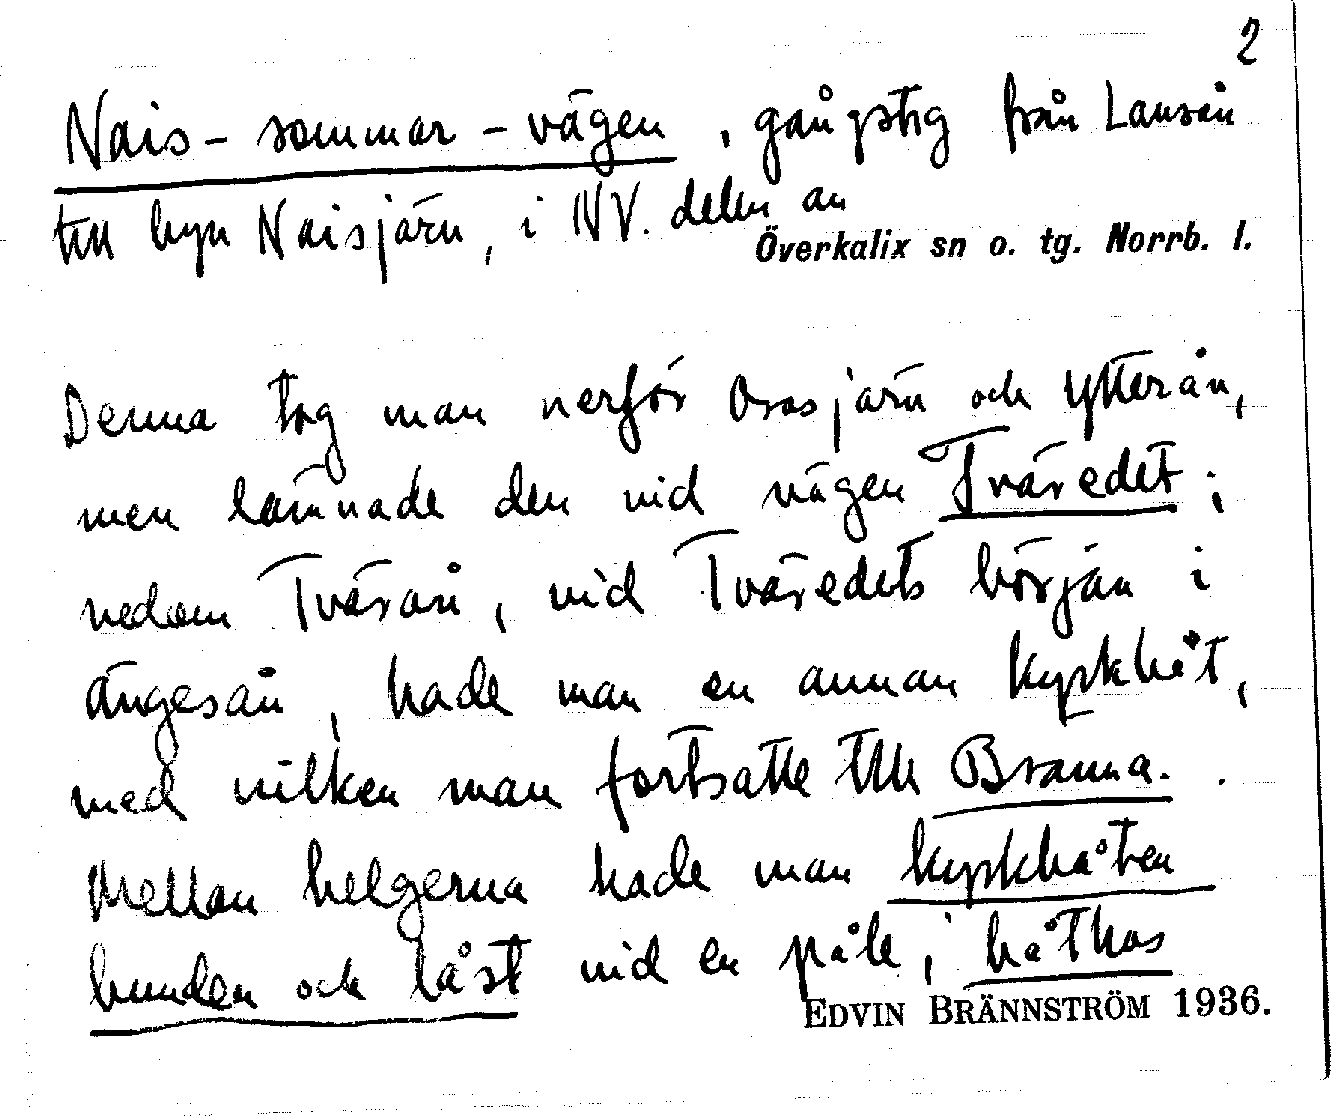 2
Nais-sommar-vägen, gångstig från Lansån
till byn Naisjärv, i NV. delen av
Överkalix sn o. tg. Norrb. l.
Denna tog man nerför Orasjärv och Ytterån,
men lämnade den vid vägen Tväredet;
nedom Tvärån, vid Tväredets början i
ängesån, hade man en annan kyrkbåt,
med vilken man fortsatte till Bränna.
Mellan helgerna hade man kyrkbåten
bunden och låst vid en påle, i båthus
EDVIN BRÄNNSTRÖM 1936.